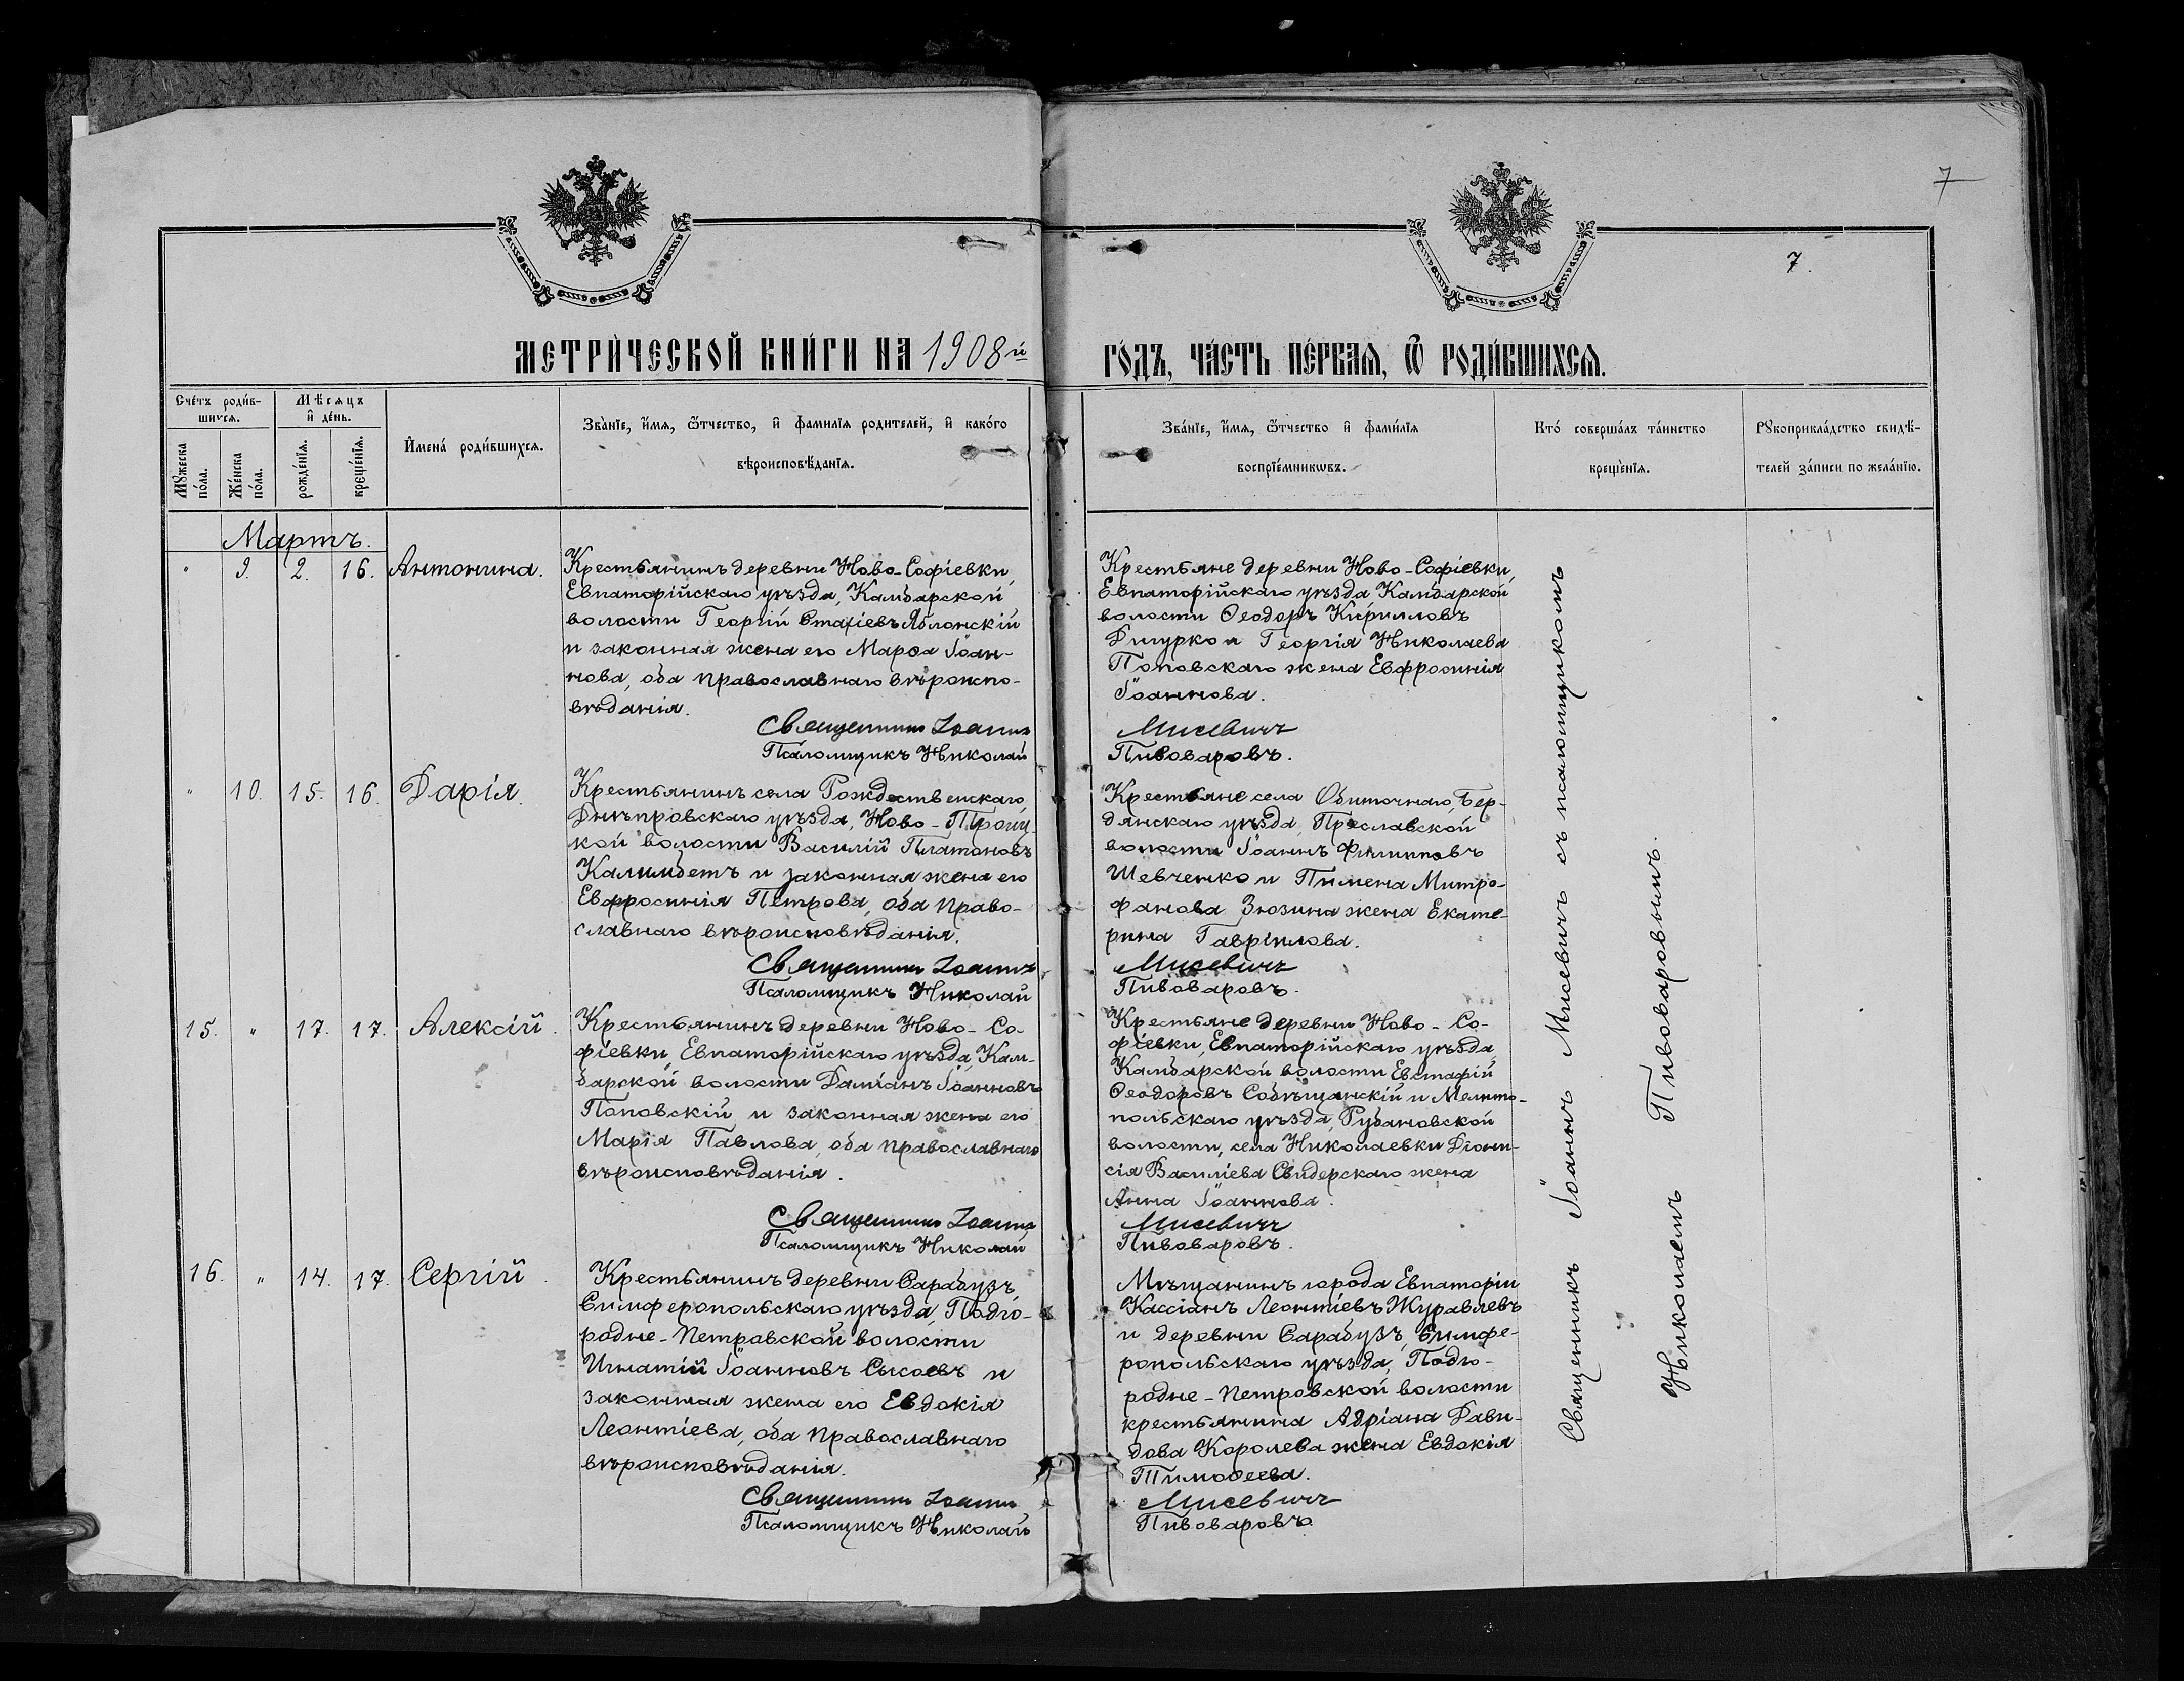 7
7.
МЕТРИ́ЧЕСКОЙ КНИ́ГИ НА 1908й
ГО́ДЪ, ЧА́СТЬ ПЕ́РВАѦ, Ѽ РОДИ́ВШИХСѦ.
Сче́тъ роди́в-
шихся.
Мꙋ́жеска по́ла.
Же́нска по́ла.
Мѣ́сяцъ
и҆ де́нь.
рожде́нїѧ.
креще́нїѧ.
И҆мена́ роди́вшихсѧ.
Зва́нїе, и҆́мѧ, ѻ҆́тчество, и҆ фами́лїѧ роди́телей, и҆ како́гѡ
вѣроисповѣ́данїѧ.
Зва́нїе, и҆́мѧ, ѻ҆́тчество и҆ фами́лїѧ
воспрїе́мникѡвъ.
Кто́ соверша́лъ та́инство
креще́нїѧ.
Рꙋкоприкла́дство свидѣ́-
телей за́писи по жела́нїю.
Мартъ.
" 9. 2. 16. Антонина.
Крестьянинъ деревни Ново-Софіевки,
Евпаторійскаго уѣзда, Камбарской
волости Георгій Стахіевъ Яблонскій
и законная жена его Марѳа Іоан-
нова, оба православнаго вѣроиспо-
вѣданія.
Священникъ Іоаннъ
Псаломщикъ Николай
Крестьяне деревни Ново-Софіевки,
Евпаторійскаго уѣзда Камбарской
волости Ѳеодоръ Кирилловъ
Дигурко и Георгія Николаева
Поповскаго жена Евфросинія
Іоаннова.
Мисевичъ
Пивоваровъ.
" 10. 15. 16. Дарія.
Крестьянинъ села Рождественскаго,
Днѣпровскаго уѣзда, Ново-Троиц-
кой волости Василій Платоновъ
Калимбетъ и законная жена его
Евфросинія Петрова, оба право-
славнаго вѣроисповѣданія.
Священникъ Іоаннъ
Псаломщикъ Николай
Крестьяне села Обиточнаго, Бер-
дянскаго уѣзда, Преславской
волости Іоаннъ Филипповъ
Шевченко и Пимена Митро-
фанова Зюзина жена Екате-
рина Гавріилова.
Мисевичъ
Пивоваровъ.
15. " 17. 17. Алексій.
Крестьянинъ деревни Ново-Со-
фіевки, Евпаторійскаго уѣзда, Кам-
барской волости Даміанъ Іоанновъ
Поповскій и законная жена его
Марія Павлова, оба православнаго
вѣроисповѣданія.
Священникъ Іоаннъ
Псаломщикъ Николай
Крестьяне деревни Ново-Со-
фіевки, Евпаторійскаго уѣзда
Камбарской волости Евстафій
Ѳеодоровъ Собѣщанскій и Мелито-
польскаго уѣзда, Рубановской
волости, села Николаевки Діони-
сія Василіева Свидерскаго жена
Анна Іоаннова.
Мисевичъ
Пивоваровъ.
16. " 14. 17. Сергій.
Крестьянинъ деревни Сарабузъ,
Симферопольскаго уѣзда, Подго-
родне-Петровской волости
Игнатій Іоанновъ Сысоевъ и
законная жена его Евдокія
Леонтіева, оба православнаго
вѣроисповѣданія.
Священникъ Іоаннъ
Псаломщикъ Николай
Мѣщанинъ города Евпаторіи
Кассіанъ Леонтіевъ Журавлевъ
и деревни Сарабузъ, Симфе-
ропольскаго уѣзда, Подго-
родне-Петровской волости
крестьянина Адріана Дави-
дова Королева жена Евдокія
Тимоѳеева.
Мисевичъ
Пивоваровъ
Священникъ Іоаннъ Мисевичъ съ псаломщикомъ
Николаемъ Пивоваровымъ.